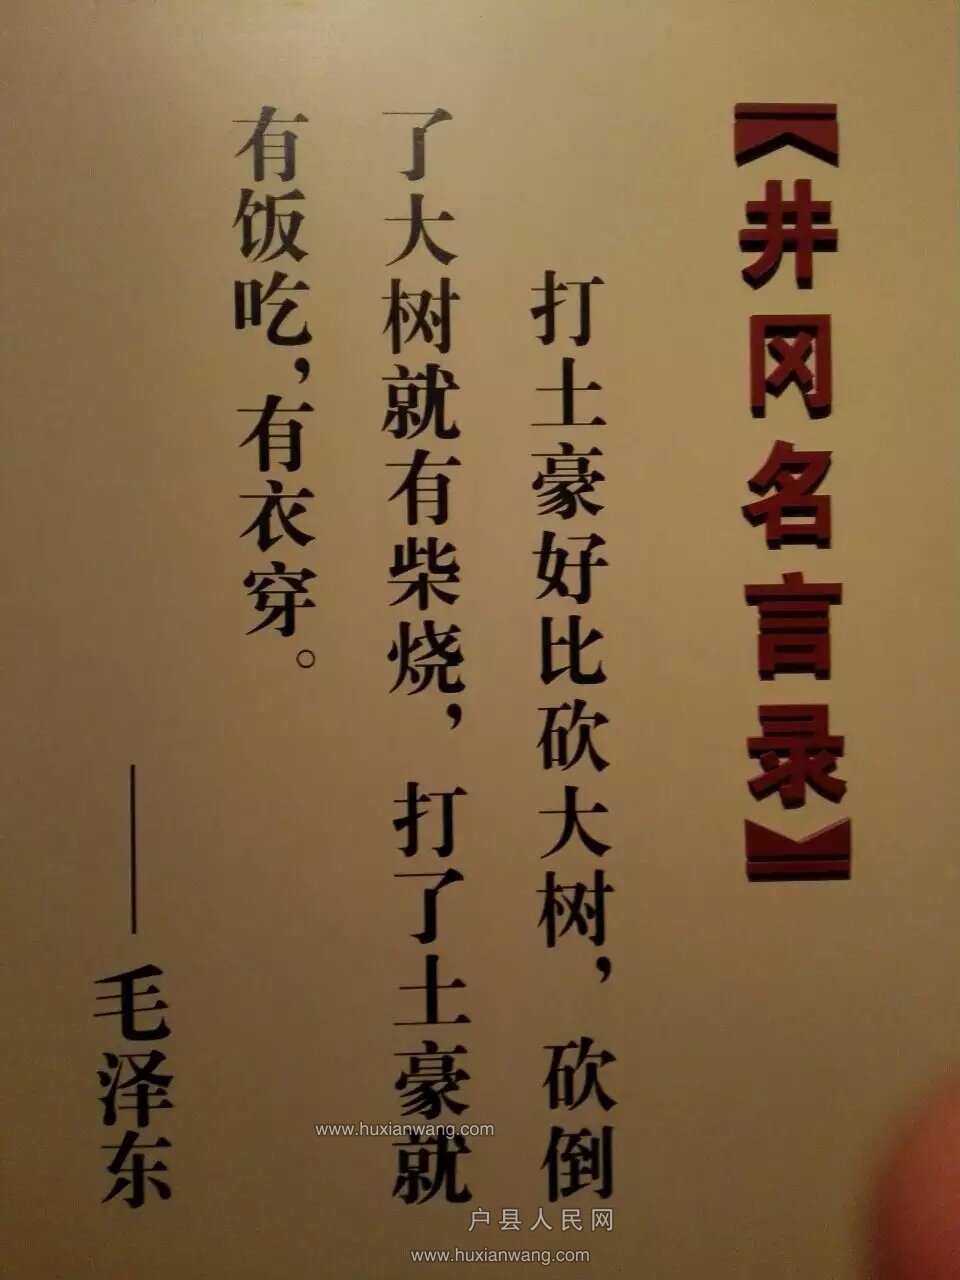 《井冈名言录》
打土豪好比砍大树，砍倒
了大树就有柴烧，打了土豪就
有饭吃，有衣穿。
——毛泽东
www.huxianwang.com
户县人民网
www.huxianwang.com